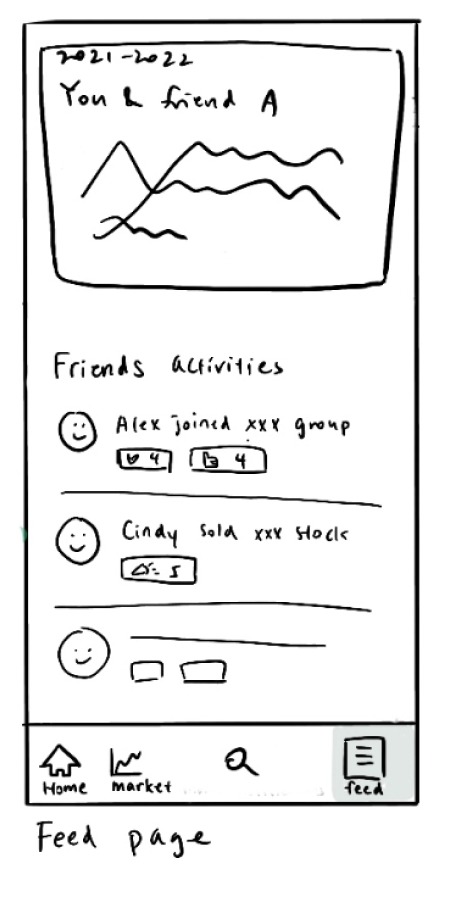 2021-2022
You & friend A
Friends activities
Alex joined xxx group
4 4
Cindy sold xxx stock
5
Home market feed
Feed page